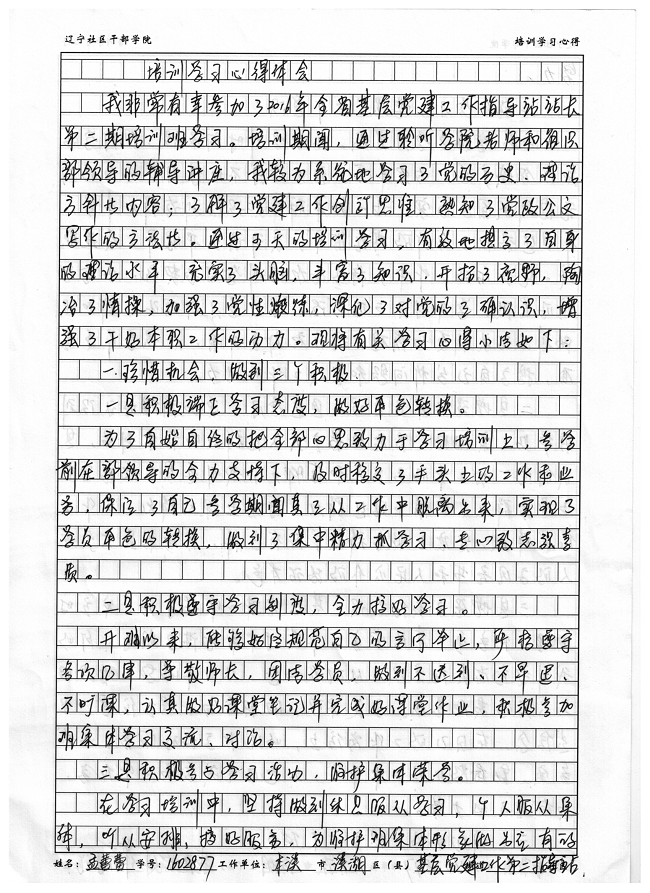 辽宁社区干部学院 培训学习心得
培训学习心得体会
我非常有幸参加了2016年全省基层党建工作指导站站长
第二期培训班学习。培训期间，通过聆听学院老师和组织
部领导的辅导讲座，我较为系统地学习了党的历史、理论
方针与内容；了解了党建工作创新思维、熟知了党政公文
写作的方法与。通过 天的培训学习，有效地提高了自身
的理论水平，充实了头脑，丰富了知识，开拓了视野，陶
冶了情操，加强了党性锻炼，深化了对党的正确认识，增
强了干好本职工作的动力。现将有关学习心得小结如下：
一、珍惜机会，做到三个积极。
一是积极端正学习态度，做好角色转换。
为了自始自终的把全部心思致力于学习培训上，参学
前在部领导的全力支持下，及时移交了手头上的工作和业
务，保证了自己参学期间真正从工作中脱离出来，实现了
学员角色的转换，做到了集中精力抓学习、专心致志强素
质。
二是积极遵守学习制度，全力搞好学习。
开班以来，能够始终规范自己的言行举止，严格遵守
各项 ，尊敬师长，团结学员，做到不迟到、不早退、
不旷课，认真做好课堂笔记并完成好课堂作业，积极参加
班集体学习交流、讨论。
三是积极参与学习活动，维护集体荣誉。
在学习培训中，坚持做到休息服从学习，个人服从集
体，听从安排，搞好服务，为维护班集体形象做出应有的
姓名： 学号：1602877 工作单位：本溪 市 溪湖 区（县）基层党建工作第二指导站